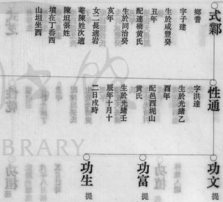 式鄴
鄉耆
字子建
生於咸豐癸
丑年
配連塘黃氏
生於同治癸
亥年
女二長適岩
菴陳姓次適
陳坦張姓
墳在丁香西
山坦坐酉
性通
字洪達
生於光緒乙
酉年
配邑西楊山
黃氏
生於光緒壬
辰年十月十
二日戌時
功文
提
功富
提
功生
提
BRARY